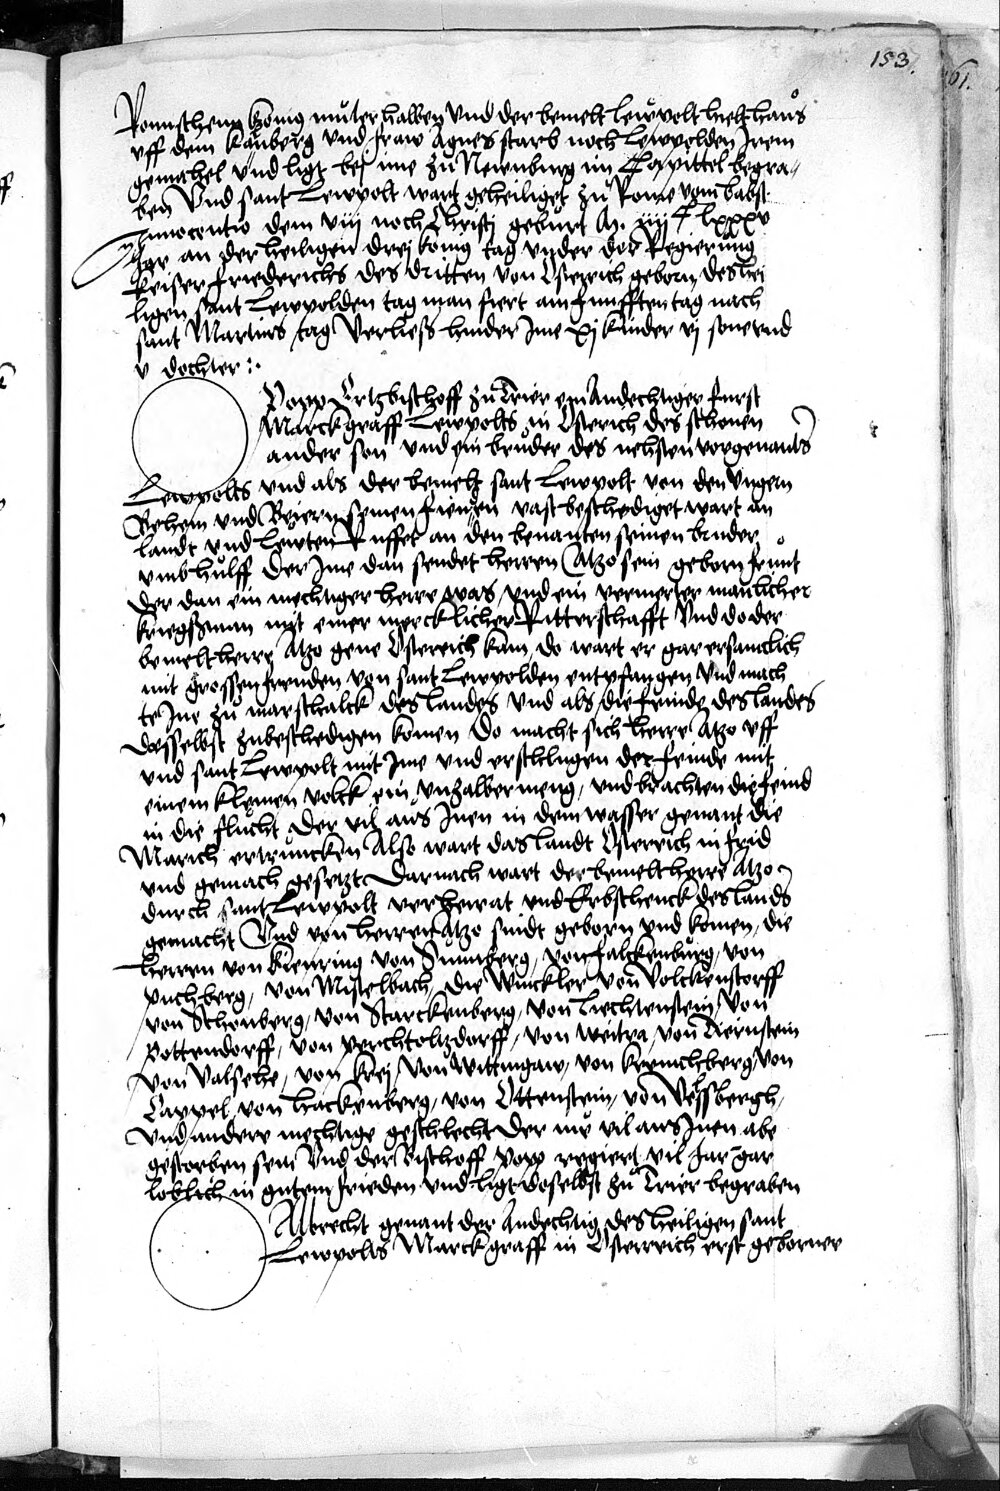 153.
61.
Romischenn konig muter halben Vnd der bemelt lewpolt hielt haus
vff dem kalnberg vnd fraw Agnes starb noch Lewpolden Irem
gemahel vnd ligt bej ime zu Newnburg im Capittel begra-
ben Vnd sant Lewpolt wart geheiliget zu Rome vom babst
Innocentio dem viij noch Christi geburt M. iiij C lxxxv
Jar an der heiligen drej konig tag vnder der Regierung
keiser friederichs des dritten von Osterich geborn, des hei
ligen sant Lewpolden tag man fiert am funfften tag nach
sant Martins tag Verließ hinder Ime xj kinder vj sone vnd
v dochter :.
Popp Ertzbischoff zu Trier ein Andechtiger furst
Marckgraff Lewpolts in Osterich des schonen
ander son vnd ein bruder des nehsten vorgenants
Lewpolts vnd als der bemelt sant Lewpolt von den Vngern
Behem vnd Beiern seinen feinden vast beschediget wart an
landt vnd lewten Rufft er an den benanten seinen bruder
vmb hulff Der Ime dan sendet herren Atzo sein geborn frunt
der dan ein mechtiger herre was, vnd ein vermerter manlicher
kriegßman mit einer mercklicher Ritterschafft Vnd do der
bemelt herre Atzo gene Osterreich kam, do wart er gar ersamclich
mit grossen freuden von sant Lewpolden entpfangen Vnd mach
te Ine zu marschalck des landes vnd als die feinde des landes
dasselbst zubeschedigen komen Do macht sich herre Atzo vff
vnd sant Lewpolt mit Ime vnd erschlugen der feinde mit
einem kleinen volck ein vnzalber meng, vnd brachten die feind
in die flucht Der vil aus Inen in dem wasser genant die
Marich ertruncken Also wart das landt Osterreich in frid
vnd gemach gesetzt Darnach wart der bemelt herre Atzo
durch sant Lewpolt verheirat vnd Erbschenck des lands
gemacht Vnd von herren Atzo sindt geborn vnd komen, die
herren von kienring von Sunnberg, von falckenburg, von
puchberg, von Mistelbach, die Winckler von Volckenstorff
von Schonberg, von Starckenberg, von Liechtenstein, von
pottendorff, von perchtoltzdorff, von Weitra, von Tiernstein
von Valsehe, von krej, von Wittingaw, von kremchberg, von
Cappel von hackenberg, von Ottenstein, von Veßbergh,
vnd andere mechtige geschlecht Der nue vil aus Inen abe
gestorben sein Vnd der Bischoff popp regiert vil Jar gar
loblich in gutem frieden vnd ligt doselbst zu Trier begraben
Albrecht genant der Andechtig des heiligen sant
Lewpolts Marckgraff in Osterreich erst geborner